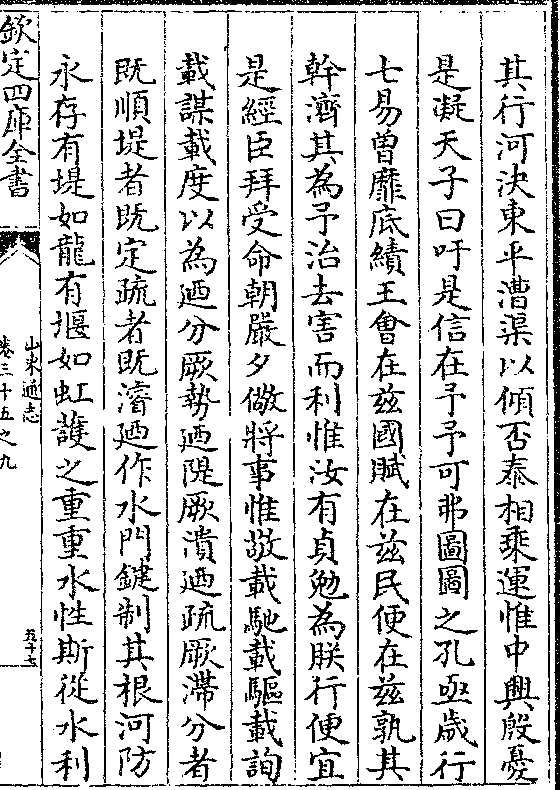 其行河決東平漕渠以傾否泰相乘運惟中興殷憂
是凝天子曰吁是信在予予可弗圖圖之孔亟歲行
七易曾靡底績王會在兹國賦在兹民便在兹孰其
幹濟其為予治去害而利惟汝有貞勉為朕行便宜
是經臣拜受命朝嚴夕儆將事惟敬載馳載驅載詢
載謀載度以為廼分厥勢廼隄厥潰廼疏厥滯分者
既順堤者既定疏者既濬廼作水門鍵制其根河防
永存有堤如龍有堰如虹護之重重水性斯從水利
欽定四庫全書
山東通志
卷三十五之九
五十七